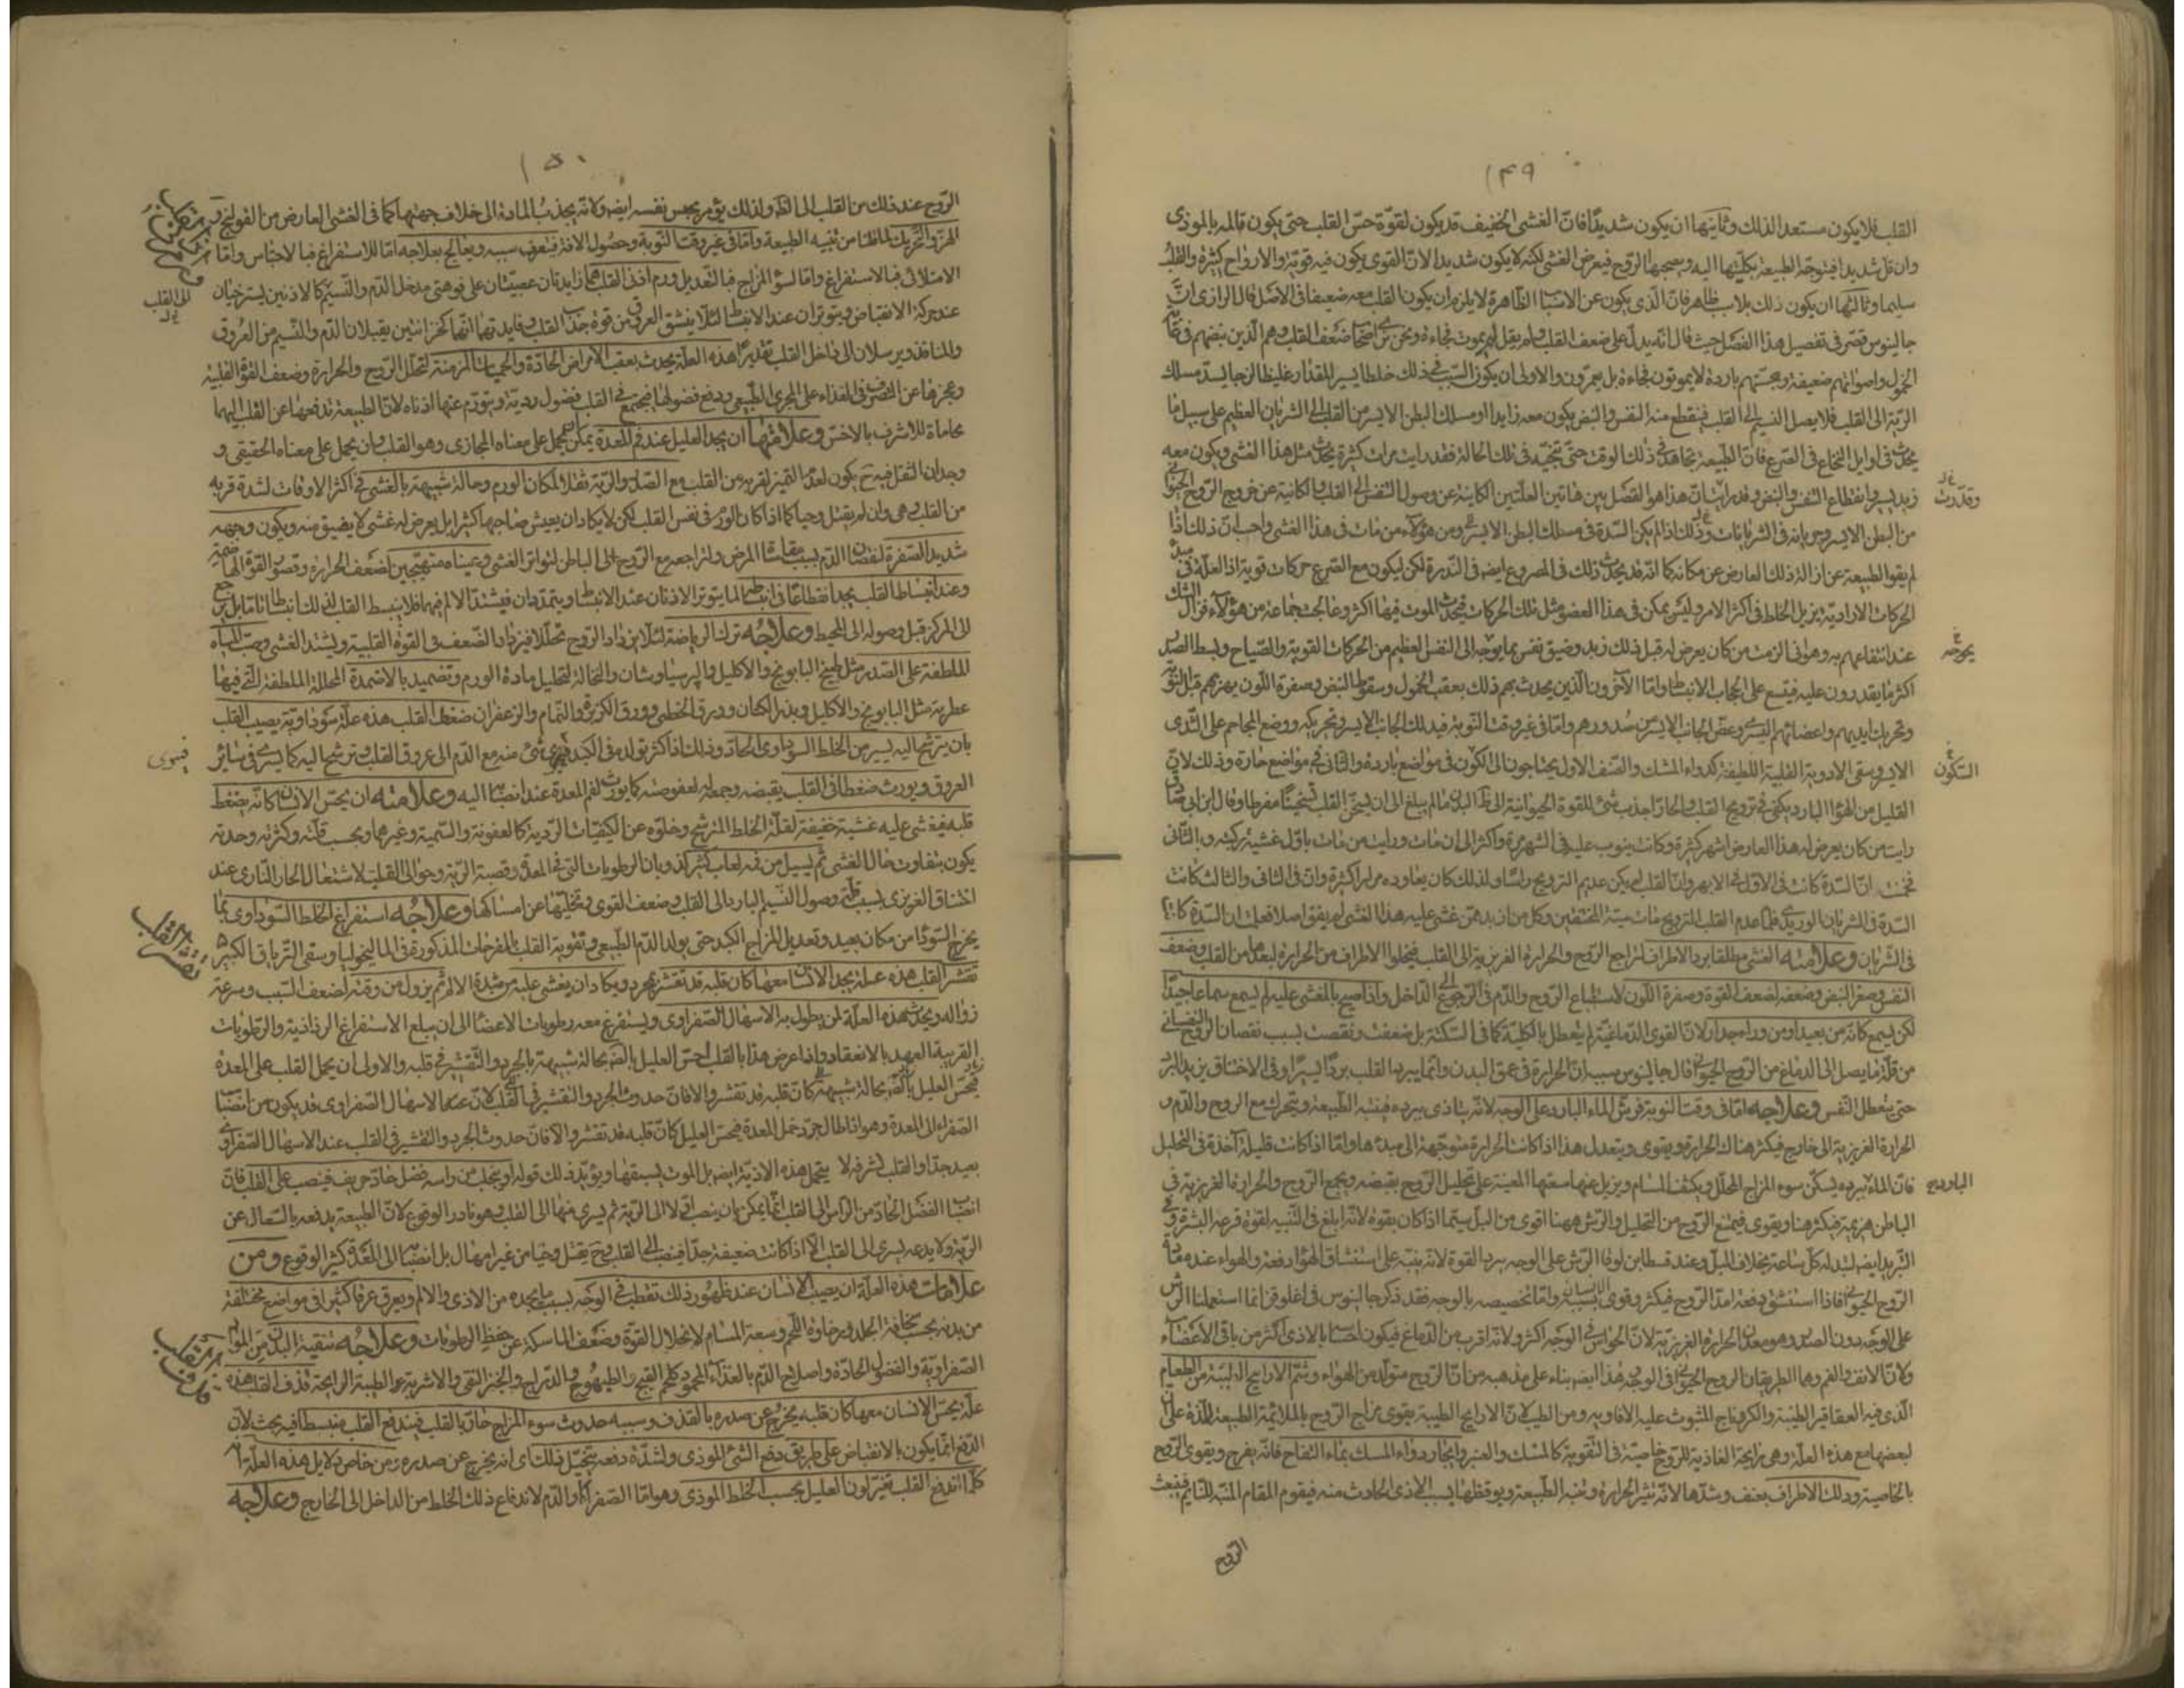 ١٤٩
القلب فلا يكون مستعدا لذلك وثانيها ان يكون شديدا فان الغشى الخفيف قد يكون لقوة حس القلب حتى يكون تالمه بالموذى
وان قل شديدا فيتوجه الطبيعة بكليتها اليه ويصحبها الروح فيعرض الغشى لكنه لا يكون شديدا لان القوى يكون فيه قوية والارواح كثيرة والقلب
سليما وثالثها ان يكون ذلك بلا سبب ظاهر فان الذى يكون عن الاسباب الظاهرة لا يلزم ان يكون القلب معه ضعيفا فى الاصل قال الرازى ان
جالينوس قصر فى تفصيل هذا الفصل حيث قال انه يدل على ضعف القلب ولم يقل لم يموت فجاءة ونحن نرى اصحاب ضعف القلب وهم الذين نبضهم فى غاية
الخمول واصواتهم ضعيفة ومجستهم باردة لا يموتون فجاءة بل يعمرون والاولى ان يكون السبب فى ذلك خلطا يسير المقدار غليظا لزجا يسد مسلك
الرية الى القلب فلا يصل النسيم الى القلب فينقطع منه النفس والنبض يكون معه زايدا او مسلك البطن الايسر من القلب الى الشريان العظيم على سبيل ما
يحدث فى اوايل النخاع فى الصرع فان الطبيعة تجاهد فى ذلك الوقت حتى تنحيه فى تلك الحالة فقد رايت مرات كثيرة يحدث مثل هذا الغشى ويكون معه
زبد يسير وانقطاع النفس والنبض وقد رايت ان هذا هو الفصل بين هاتين العلتين الكاينة عن وصول النفس الى القلب والكائنة عن خروج الروح الحيوانى
من البطن الايسر وجريانه فى الشريانات وذلك اذا لم يكن السدة فى مسلك البطن الايسر ومن هؤلاء من مات فى هذا الغشى واحب ان ذلك اذا
لم يقو الطبيعة عن ازالة ذلك العارض عن مكانه كما انه قد يحدث ذلك فى المصروع ايضا فى الندرة لكن ليكون مع الصرع حركات قوية اذ العلة فى مبدء
الحركات الارادية يزيل الخلط فى اكثر الامر وليس يمكن فى هذا العضو مثل تلك الحركات فيحدث الموت فيها اكثر وعالجت جماعة من هؤلاء فزال الشك
عند انتفاعهم به وهو انى الزمت من كان يعرض له قبل ذلك زبد وضيق نفس بما يوجه الى النفس العظيم من الحركات القوية والصياح وبسط الصدر
اكثر ما يقدرون عليه فيتسع على الحجاب الانبساط واما الآخرون الذين يحدث بهم ذلك بعقب الخمول وسقوط النبض وصفرة اللون بهزهم قبل النوبة
وتحريك ايديهم واعضائهم اليسرى وعض الجانب الايسر من صدورهم واما فى غير وقت النوبة فبدلك الجانب الايسر وتحريكه ووضع المحاجم على الثدى
الايسر وسقى الادوية القلبية اللطيفة كدواء المشك والصنف الاول يحتاجون الى الكون فى مواضع باردة والثانى فى مواضع حارة وذلك لان
القليل من الهواء البارد يكفى فى ترويح القلب والحار اجذب شئ للقوة الحيوانية الى ظاهر البدن ما لم يبلغ الى ان يسخن القلب تسخينا مفرطا وقال ابن ابى صادق
رايت من كان يعرض له هذا العارض اشهر كثيرة وكانت ينوب عليه فى الشهر مرة واكثر الى ان مات ورايت من مات باول غشية وبالثانى
فخمنت ان السدة كانت فى الاول فى الابهر وان القلب لم يكن عديم الترويح راسا ولذلك كان يعاوده مرارا كثيرة وان فى الثانى والثالث كانت
السدة فى الشريان الوريدى فلما عدم القلب الترويح مات ميتة المختنقين وكل من ان بدء من غشى عليه هذا الغشى لم يفق اصلا فعلمت ان السدة كانت
فى الشريان وعلامته الغشى مطلقا برد الاطراف لتراجع الروح والحرارة الغريزية الى القلب فيخلوا الاطراف من الحرارة لبعدها من القلب وضعف
النفس وصغر النبض وضعفه لضعف القوة وصفرة اللون لاستتباع الروح والدم فى الرجوع الى الداخل واذا صيح بالمغشى عليه لم يسمع سماعا جيدا
لكن يسمع كانه من بعيد او من وراء جدار لان القوى الدماغية لم يتعطل بالكلية كما فى السكتة بل ضعفت ونقصت بسبب نقصان الروح النفسانى
من قلة ما يصل الى الدماغ من الروح الحيوانى قال جالينوس سبب ان الحرارة فى عمق البدن وانما يبرد القلب بردا يسيرا وفى الاختناق يزيد البرد
حتى يتعطل النفس وعلاجه اما فى وقت النوبة فبرش الماء البارد على الوجه لانه يتاذى ببرده فينبه الطبيعة ويتحرك مع الروح والدم و
الحرارة الغريزية الى خارج فيكثر هناك الحرارة ويقوى ويتعدل هذا اذا كانت الحرارة متوجهة الى مبدءها واما اذا كانت قليلة آخذة فى التحليل
فان الماء ببرده يسكن سوء المزاج المحلل ويكثف المسام ويزيل عنها سعتها المعينة على تحليل الروح بقبضه ويجمع الروح والحرارة الغريزية فى
الباطن هزيمة فيكثر هنا ويقوى فيمنع الروح من التحليل والرش ههنا اقوى من البل سيما اذا كان بقوة لانه ابلغ فى التنبيه لقوة قرعه البشرة وفى
التبريد ايضا لتبدله كل ساعة بخلاف البل وعند قسطا بن لوقا الرش على الوجه يرد القوة لانه ينبه على استنشاق الهواء دفعة والهواء عنده مادة
الروح الحيوانى فاذا استنشق دفعة امد الروح فيكثر ويقوى الانسان واما تخصيصه بالوجه فقد ذكر جالينوس فى اغلوقن انما استعملنا الرش
على الوجه دون الصدر وهو معدن الحرارة الغريزية لان الحواس فى الوجه اكثر ولانه اقرب من الدماغ فيكون احساسا بالاذى اكثر من باقى الاعضاء
ولان الانف والفم وهما الطريقان الروح الحيوانى فى الوجه هذا ايضا بناء على مذهبه من ان الروح متولد من الهواء وشم الارايح الطيبة من الطعام
الذى فيه العقاقير الطيبة والكردناج المثوث عليه الافاويه ومن الطيب لان الارايح الطيبة يقوى مزاج الروح بالملائمة الطبيعة اللذة على ان
لبعضها مع هذه العلة وهى رايحة الغاذية للروح خاصية فى التقوية كالمسك والعنبر وايجار دواء المسك بماء التفاح فانه يفرح ويقوى الروح
بالخاصية ودلك الاطراف بعنف وشدها لانه تثير الحرارة وتنبه الطبيعة ويوقظها بسبب الاذى الحادث منه فيقوم المقام المنبه للنايم فينبعث
وقد رايت
يوجه
السكون
البارد
الروح
١٥٠
الروح عند ذلك من القلب الى الظاهر ولذلك يؤمر بحبس نفسه ايضا ولانه يجذب المادة الى خلاف جهتها كما فى الغشى العارض من القولنج و
الهز والتحريك لما ظنا من تنبيه الطبيعة واما فى غير وقت النوبة وحصول الافاقة فيتعرف سببه ويعالج بعلاجه اما للاستفراغ فبالاحتباس واما
الامتلائى فبالاستفراغ واما لسوء المزاج فبالتعديل ورم اذنى القلب هما زايدتان عصبيتان على فوهتى مدخل الدم والنسيم كالاذنين يسترخيان
عند حركة الانقباض ويتوتران عند الانبساط لئلا ينشق العروق من قوة جذب القلب وفايدتها انها كخزانتين يقبلان الدم والنسيم من العروق
والمنافذ ويرسلان الى داخل القلب تقديرا هذه العلة يحدث بعقب الامراض الحادة والحميات المزمنة لتحلل الروح والحرارة وضعف القوة القلبية
وعجزها عن التصرف فى الغذاء على المجرى الطبيعى ودفع فضولها فيجتمع فى القلب فضول ردية ويتورم عنها اذناه لان الطبيعة تدفعها عن القلب اليهما
محاماة للاشرف بالاخس وعلامتها ان يجد العليل عند فم المعدة يمكن ان يحمل على معناه المجازى وهو القلب وان يحمل على معناه الحقيقى و
وجدان الثقل فيه ح يكون لعدم التميز لقربه من القلب مع الصدر والرية ثقلا لمكان الورم وحالة شبيهة بالغشى فى اكثر الاوقات لشدة قربه
من القلب وهى وان لم يقتل وحيا كما اذا كان الورم فى نفس القلب لكن لا يكاد ان يعيش صاحبها كثيرا بل يعرض له غشى لا يفيق منه ويكون وجهه
شديد الصفرة لنقصان الدم بسبب مقاساة المرض ولتراجعه مع الروح الى الباطن لتواتر الغشى وعيناه متهيجتين لضعف الحرارة وقصور القوة الهاضمة
وعند انبساط القلب يجد انقطاعا فى انبساطه لما يتوتر الاذنان عند الانبساط ويتمددان فيشتد الالم فيهما فلا ينبسط القلب لذلك انبساطا تاما بل يرجع
الى المركز قبل وصوله الى المحيط وعلاجه ترك الرياضة لئلا يزداد الروح تحللا فيزداد الضعف فى القوة القلبية ويشتد الغشى وصب المياه
الملطفة على الصدر مثل طبيخ البابونج والاكليل والپرسياوشان والنخالة لتحليل مادة الورم وتضميده بالاضمدة المحللة الملطفة التى فيها
عطرية مثل البابونج والاكليل وبذر الكتان وورق الخطمى وورق الكزبرة والنمام والزعفران ضغط القلب هذه علة سوداوية يصيب القلب
بان يترشح اليه يسير من الخلط السوداوى الحاد وذلك اذا كثر تولده فى الكبد فيسرى شئ منه مع الدم الى عروق القلب وترشح اليه كما يسرى فى سائر
العروق ويورث ضغطا فى القلب بقبضه وجمعه له لعفوصته كما يورث لفم المعدة عند انصبابها اليه وعلامته ان يحس الانسان كانه يضغط
قلبه فيغشى عليه غشية خفيفة لقلة الخلط المترشح وخلوه عن الكيفيات الردية كالعفونة والسمية وغيرهما وبحسب قلته وكثرته وحدته
يكون يتفاوت حال الغشى ثم يسيل من فمه لعاب كثير لذوبان الرطوبات التى فى المعدة وقصبة الرية وحوالى القلب لاشتعال الحار النارى عند
اختناق الغريزى بسبب قلة وصول النسيم البارد الى القلب وضعف القوى وتخليها عن امساكها وعلاجه استفراغ الخلط السوداوى بما
يخرج السودا من مكان بعيد وتعديل المزاج الكبد حتى يولد الدم الطبيعى وتقوية القلب بالمفرحات المذكورة فى الماليخوليا وسقى الترياق الكبير
تقشر القلب هذه علة يجد الانسان معها كان قلبه قد تقشر يجرد ويكاد ان يغشى عليه من شدة الالم ثم يزول من وقته لضعف السبب وسرعة
زواله ويحدث هذه العلة لمن يطول به الاسهال الصفراوى ويستفرغ معه رطوبات الاعضاء الى ان يبلغ الاستفراغ الرذاذية والرطوبات
القريبة العهد بالانعقاد واذا عرض هذا بالقلب احس العليل بالضر بحالة شبيهة بالجرد والتقشر فى قلبه والاولى ان يحمل القلب على المعدة
فيحس العليل بالضر بحالة شبيهة كان قلبه قد تقشر والا فان حدوث الجرد والتقشر فى القلب لان عند الاسهال الصفراوى قد يكون من انصباب
الصفراء الى المعدة وهو اذا طال جرد خمل المعدة فيحس العليل كان قلبه قد تقشر والا فان حدوث الجرد والتقشر فى القلب عند الاسهال الصفراوى
بعيد جدا والقلب لشرفه لا يتحمل هذه الاذية ايضا بل الموت يسبقها ويؤيد ذلك قوله او يتحلب من راسه فضل حاد حريف فينصب على القلب فان
انصباب الفضل الحاد من الراس الى القلب انما يمكن بان ينصب اولا الى الرية ثم يسرى منها الى القلب وهو نادر الوقوع لان الطبيعة يدفعه بالسعال عن
الرية ولا يدعه يسرى الى القلب الا اذا كانت ضعيفة جدا فينصب الى القلب وح يقتل وحيا من غير امهال بل انصبابه الى المعدة كثير الوقوع ومن
علامات هذه العلة ان يصيب الانسان عند ظهور ذلك تقطب فى الوجه بسبب ما يجده من الاذى والالم ويعرق عرقا كثيرا فى مواضع مختلفة
من بدنه بحسب سخافة الجلد ورخاوة اللحم وسعة المسام لانحلال القوة وضعف الماسكة عن حفظ الرطوبات وعلاجه تنقية البدن من المواد
الصفراوية والفضول الحادة واصلاح الدم بالغذاء المحمود كلحم القبج والطيهوج والدراج والخبز النقى والاشربة الطيبة الرايحة قذف القلب هذه
علة يحس الانسان معها كان قلبه يخرج عن صدره بالقذف وسببه حدوث سوء المزاج حار بالقلب فيندفع القلب منبسطا فيه بحث لان
الدفع انما يكون بالانقباض على طريق دفع الشئ الموذى ولشدة دفعه يتخيل ذلك اى انه يخرج عن صدره ومن خاص دلايل هذه العلة ان
كلما اندفع القلب تغير لون العليل بحسب الخلط الموذى وهو اما الصفراء او الدم لاندفاع ذلك الخلط من الداخل الى الخارج وعلاجه
ورم اذنى القلب
الى القلب
فيسرى
تقشر القلب
قذف القلب